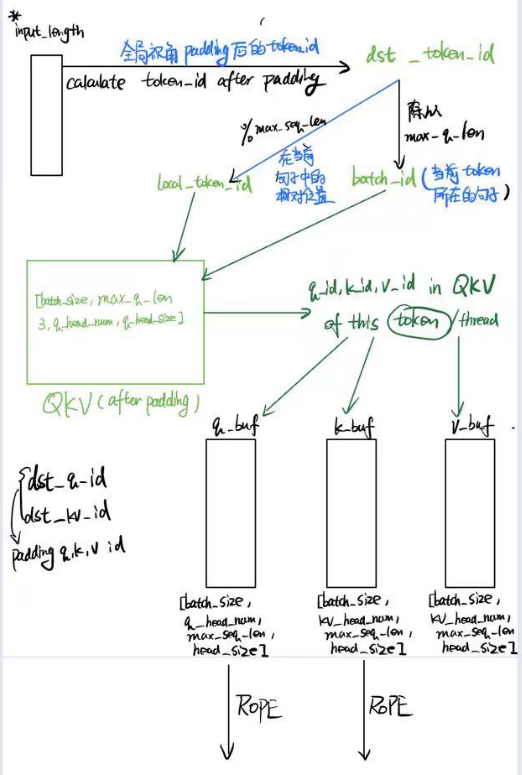 *
input_length
全局视角padding后的tokenid
calculate token_id after padding
dst_token_id
%max_seq_len
除以
max-q-len
在当前
句子中的
相对位置
local_token_id
batch_id(当前token
所在的句子)
[batch_size, max_q_len
3, q_head_num, q_head_size]
QKV(after padding)
q_id, k_id, v_id in QKV
of this token/thread
q_buf
k_buf
v_buf
dst_q-id
dst_kv_id
padding q,k,v id
[batch_size,
q_head_num,
max_seq_len,
head_size]
[batch_size,
kv_head_num,
max_seq_len,
head_size]
[batch_size,
kv_head_num,
max_seq_len,
head_size]
ROPE
ROPE